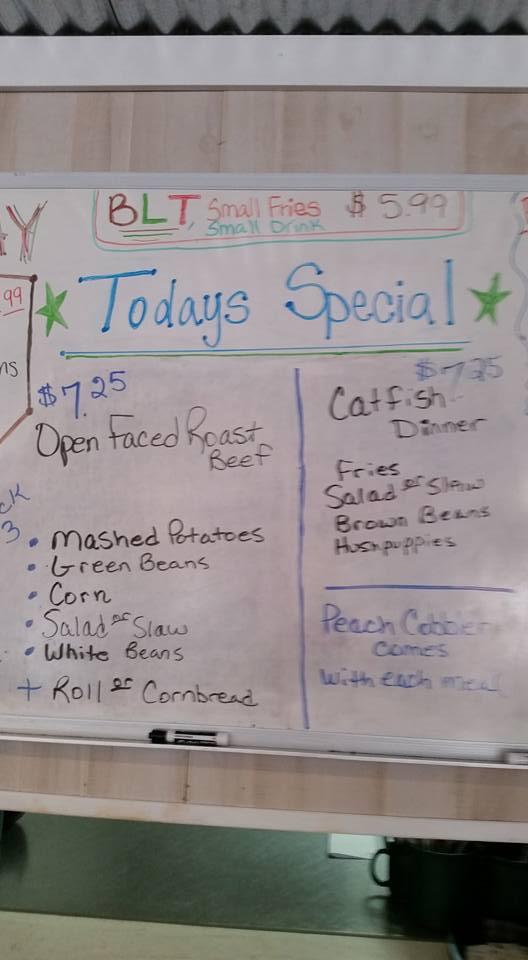 BLT, Small Fries $ 5.99
Small Drink
Y
99
Todays Special
ns
$7.25
Open Faced Roast
Beef
ck
3
• Mashed Potatoes
• Green Beans
• Corn
• Salad or Slaw
• White Beans
+ Roll or Cornbread
$7.25
Catfish
Dinner
Fries
Salad or Slaw
Brown Beans
Hushpuppies
Peach Cobbler
comes
with each meal